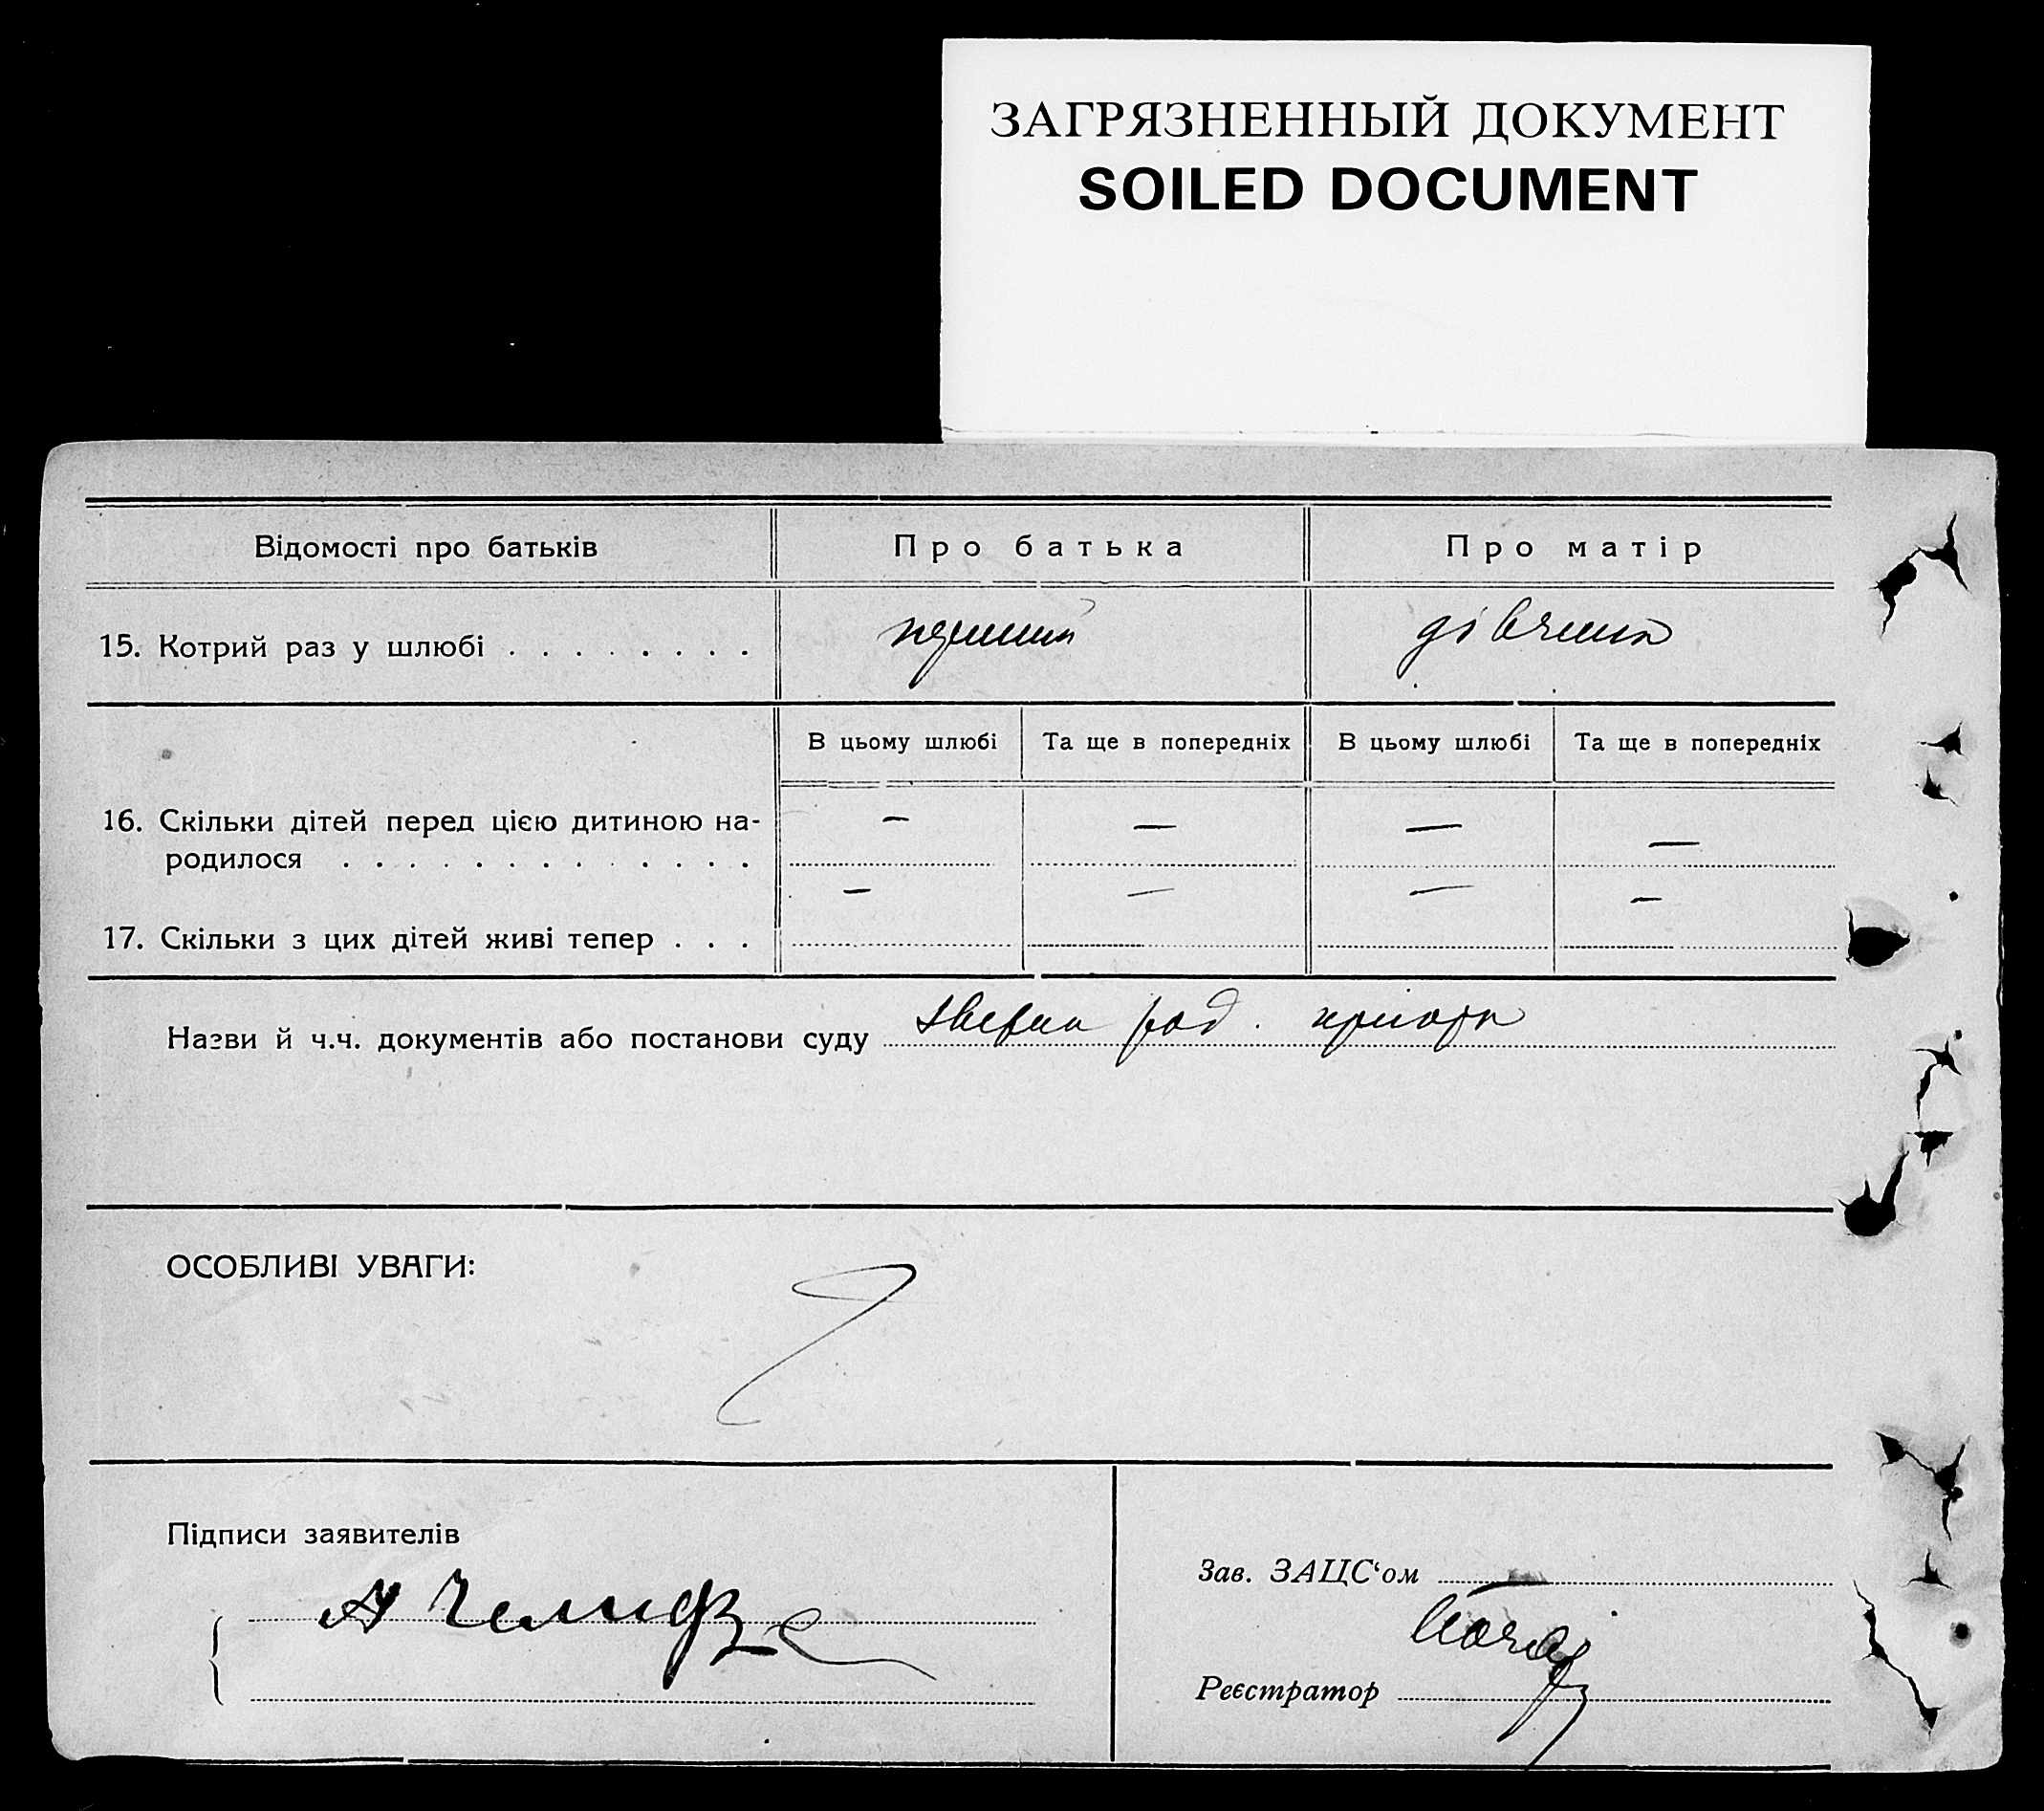 ЗАГРЯЗНЕННЫЙ ДОКУМЕНТ
SOILED DOCUMENT
Відомості про батьків Про батька Про матір
15. Котрий раз у шлюбі . . . . . . . . перший дівчина
В цьому шлюбі Та ще в попередніх В цьому шлюбі Та ще в попередніх
16. Скільки дітей перед цією дитиною на- — — — —
родилося . . . . . . . . . . . . .
17. Скільки з цих дітей живі тепер . . . — — — —
Назви й ч.ч. документів або постанови суду род.
ОСОБЛИВІ УВАГИ:
Підписи заявителів
Зав. ЗАЦС‘ом
Реєстратор